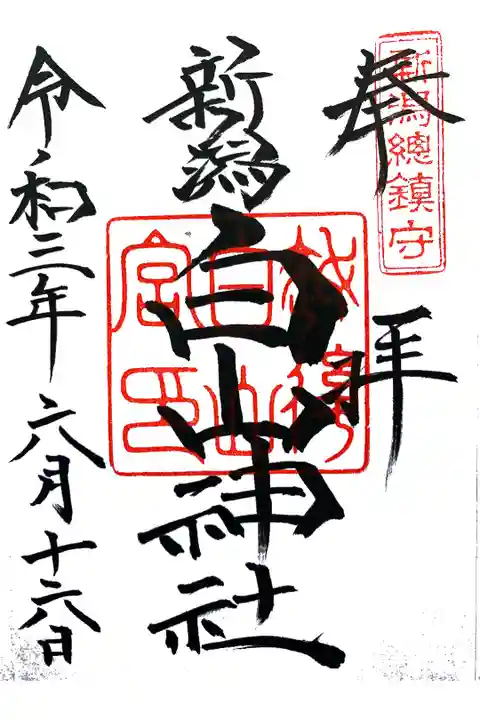 奉拝
新潟總鎮守
新潟白山神社
越後白山宮印
令和三年六月十六日